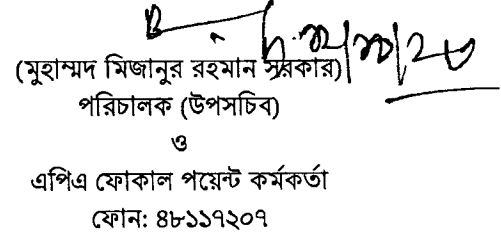 (মুহাম্মদ মিজানুর রহমান সরকার)
পরিচালক (উপসচিব)
ও
এপিএ ফোকাল পয়েন্ট কর্মকর্তা
ফোন: ৪৮১১৭২০৭